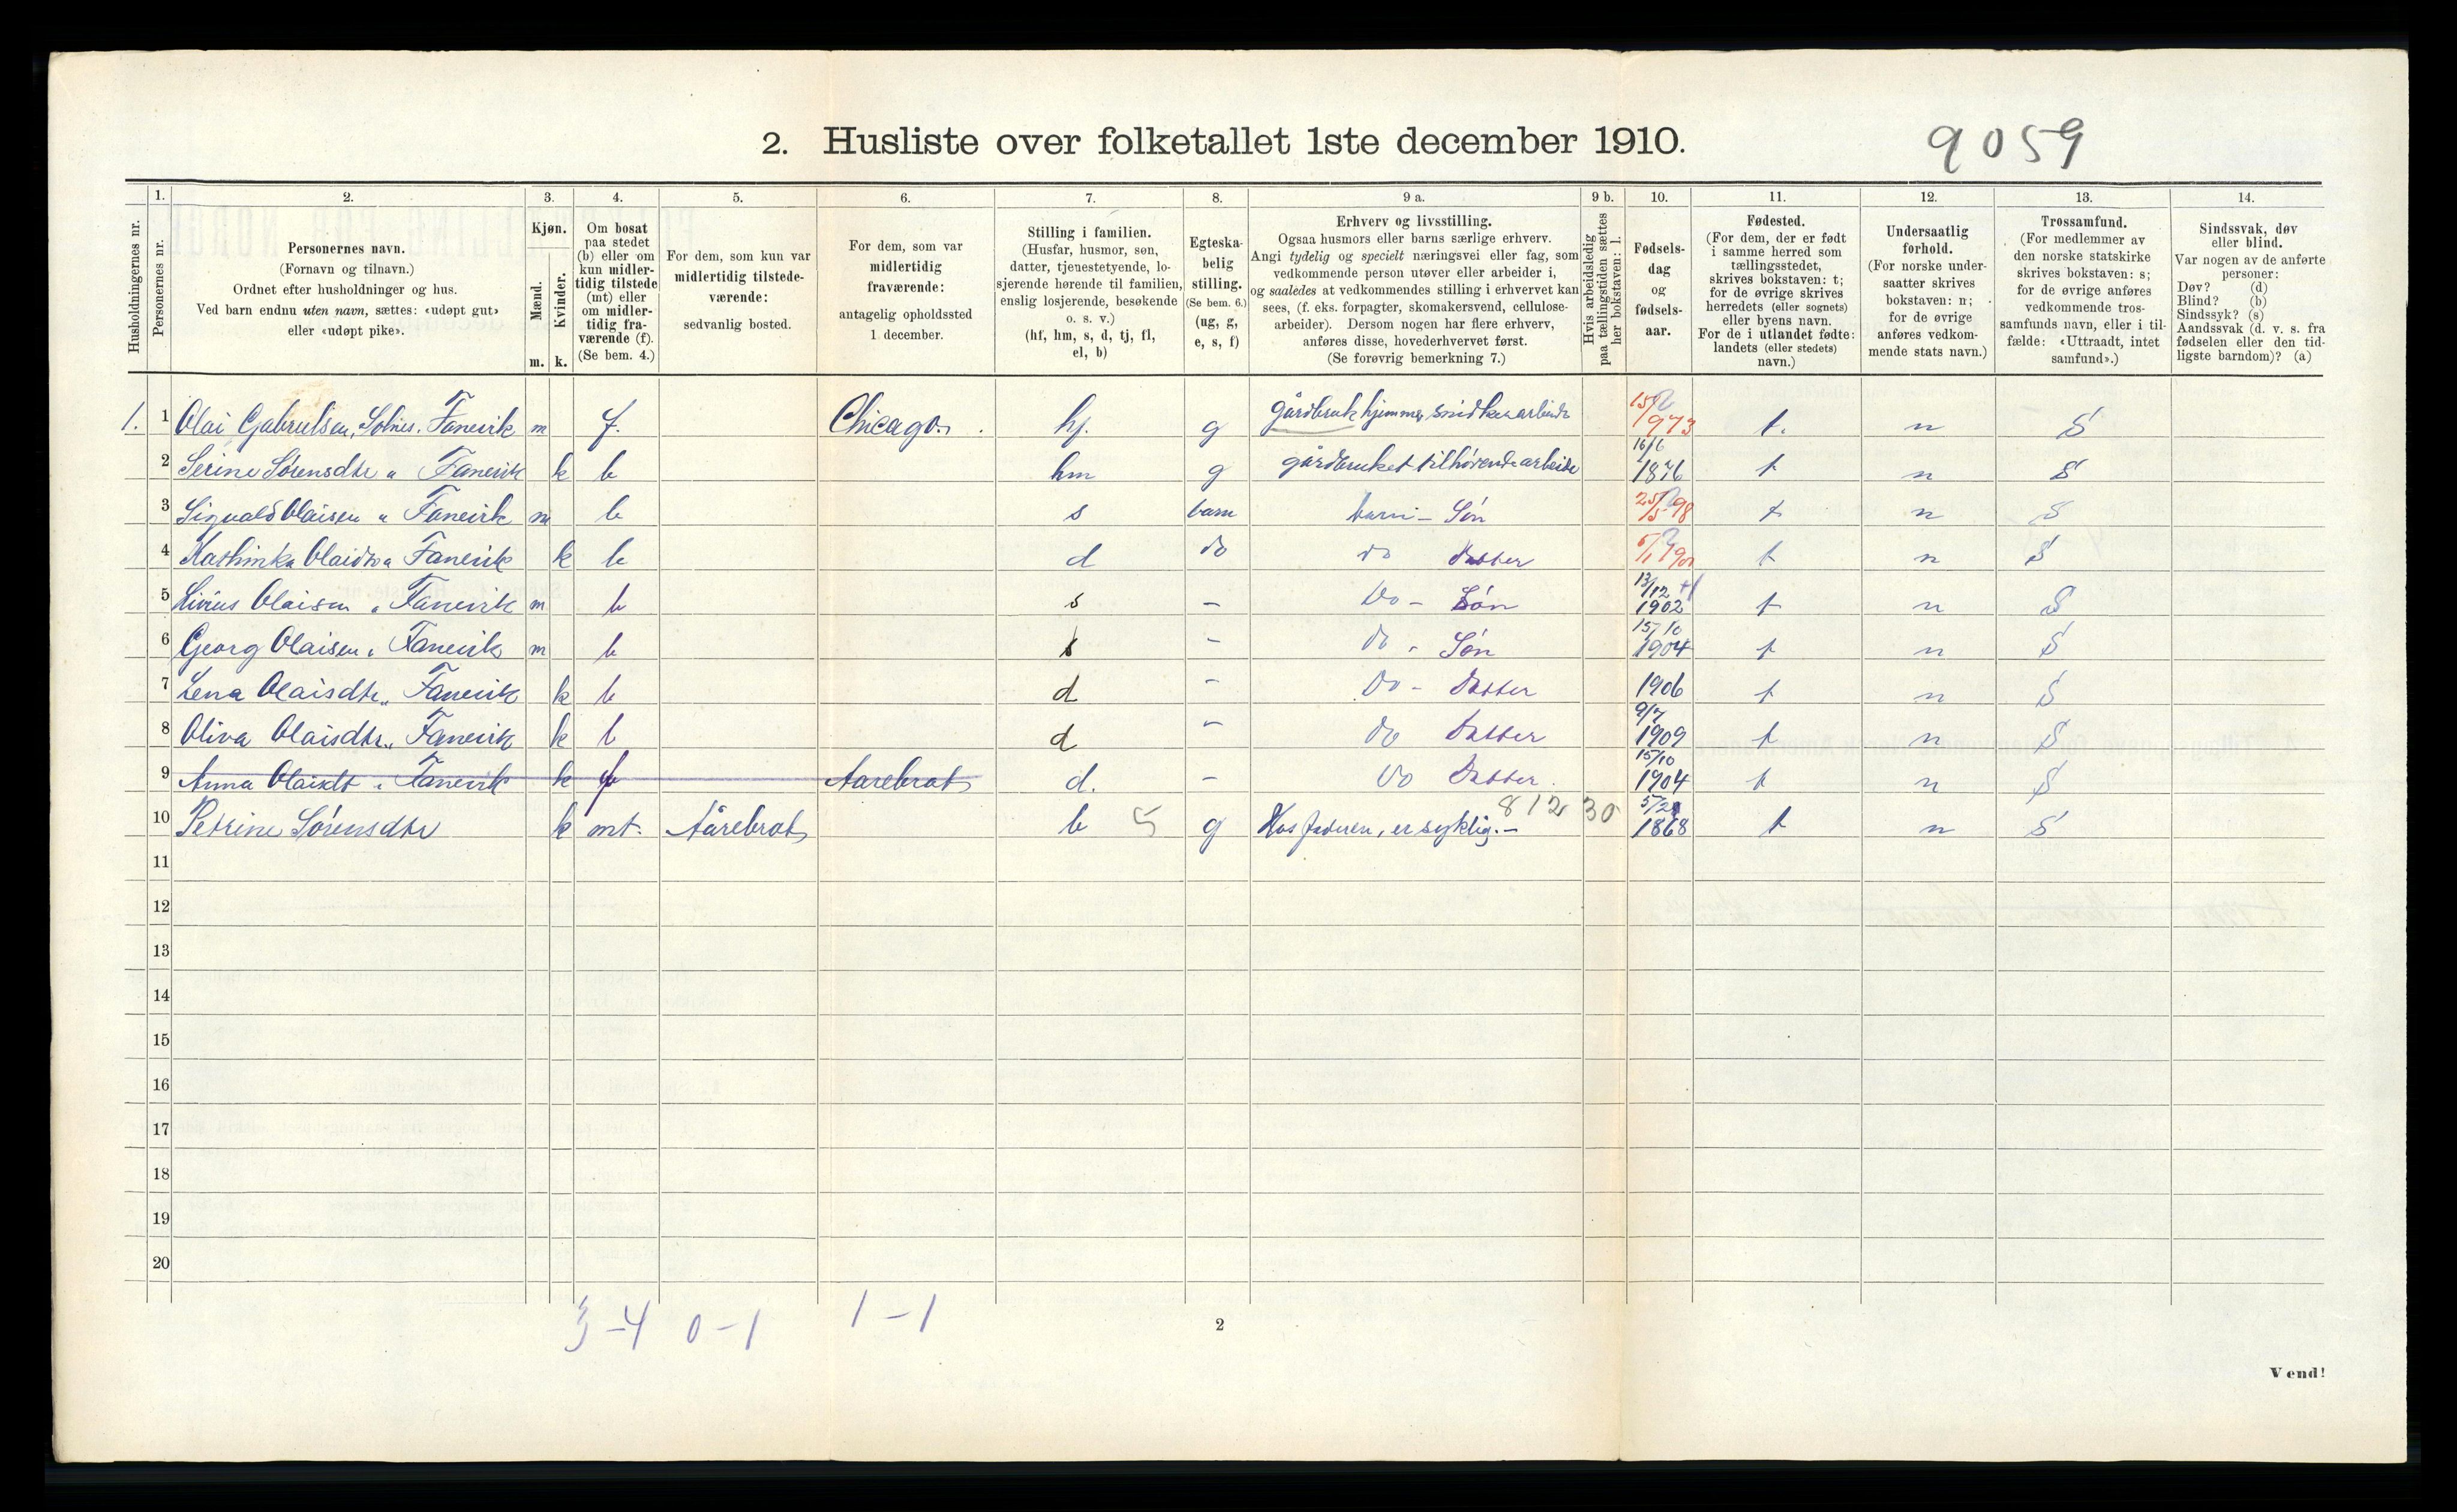 2. Husliste over folketallet 1ste december 1910.
9059
1. 2. 3. 4. 5. 6. 7. 8. 9 a. 9 b. 10. 11. 12. 13. 14.
Husholdningernes nr.
Personernes nr.
Personernes navn.
(Fornavn og tilnavn.)
Ordnet efter husholdninger og hus.
Ved barn endnu uten navn, sættes: «udøpt gut»
eller «udøpt pike».
Kjøn.
Mænd.
Kvinder.
m. k.
Om bosat
paa stedet
(b) eller om
kun midler-
tidig tilstede
(mt) eller
om midler-
tidig fra-
værende (f).
(Se bem. 4.)
For dem, som kun var
midlertidig tilstede-
værende:
sedvanlig bosted.
For dem, som var
midlertidig
fraværende:
antagelig opholdssted
1 december.
Stilling i familien.
(Husfar, husmor, søn,
datter, tjenestetyende, lo-
sjerende hørende til familien,
enslig losjerende, besøkende
o. s. v.)
(hf, hm, s, d, tj, fl,
el, b)
Egteska-
belig
stilling.
(Se bem. 6.)
(ug, g,
e, s, f)
Erhverv og livsstilling.
Ogsaa husmors eller barns særlige erhverv.
Angi tydelig og specielt næringsvei eller fag, som
vedkommende person utøver eller arbeider i,
og saaledes at vedkommendes stilling i erhvervet kan
sees, (f. eks. forpagter, skomakersvend, cellulose-
arbeider). Dersom nogen har flere erhverv,
anføres disse, hovederhvervet først.
(Se forøvrig bemerkning 7.)
Hvis arbeidsledig
paa tællingstiden sættes
her bokstaven: l.
Fødsels-
dag
og
fødsels-
aar.
Fødested.
(For dem, der er født
i samme herred som
tællingsstedet,
skrives bokstaven: t;
for de øvrige skrives
herredets (eller sognets)
eller byens navn.
For de i utlandet fødte:
landets (eller stedets)
navn.)
Undersaatlig
forhold.
(For norske under-
saatter skrives
bokstaven: n;
for de øvrige
anføres vedkom-
mende stats navn.)
Trossamfund.
(For medlemmer av
den norske statskirke
skrives bokstaven: s;
for de øvrige anføres
vedkommende tros-
samfunds navn, eller i til-
fælde: «Uttraadt, intet
samfund».)
Sindssvak, døv
eller blind.
Var nogen av de anførte
personer:
Døv? (d)
Blind? (b)
Sindssyk? (s)
Aandssvak (d. v. s. fra
fødselen eller den tid-
ligste barndom)? (a)
1. 1 Olai Gabrielsen, Solnes. Fanevik m f. Chicago. hf. g gårdbruk hjemme, snidkerarbeide 15/2 1973 t. n S
2 Serine Sørensdtr " Fanevik k b hm g gårdbruket tilhørende arbeide 16/6 1876 t n S
3 Sigvald Olaisen " Fanevik m b s barn barn - Søn 25/5 98 t n S
4 Kathinka Olaidtr " Fanevik k b d do do Datter t n S
5 Livius Olaisen " Fanevik m b s - Do - Søn 13/12 1902 t n S
6 Georg Olaisen " Fanevik m b s - do - Søn 15/10 1904 t n S
7 Lena Olaisdtr " Fanevik k b d - Do - Datter 1906 t n S
8 Oliva Olaisdtr " Fanevik k b d - do Datter 9/7 1909 t n S
9 Anna Olaisdt " Fanevik k f Aarebrot d. - Do Datter 15/10 1904 t n S
10 Petrine Sørensdtr k mt. Aårebrot b 5 g Hos faderen, er syklig. - 812 30 1868 t n S
11
12
13
14
15
16
17
18
19
20
3-4 0-1 1-1
2
Vend!